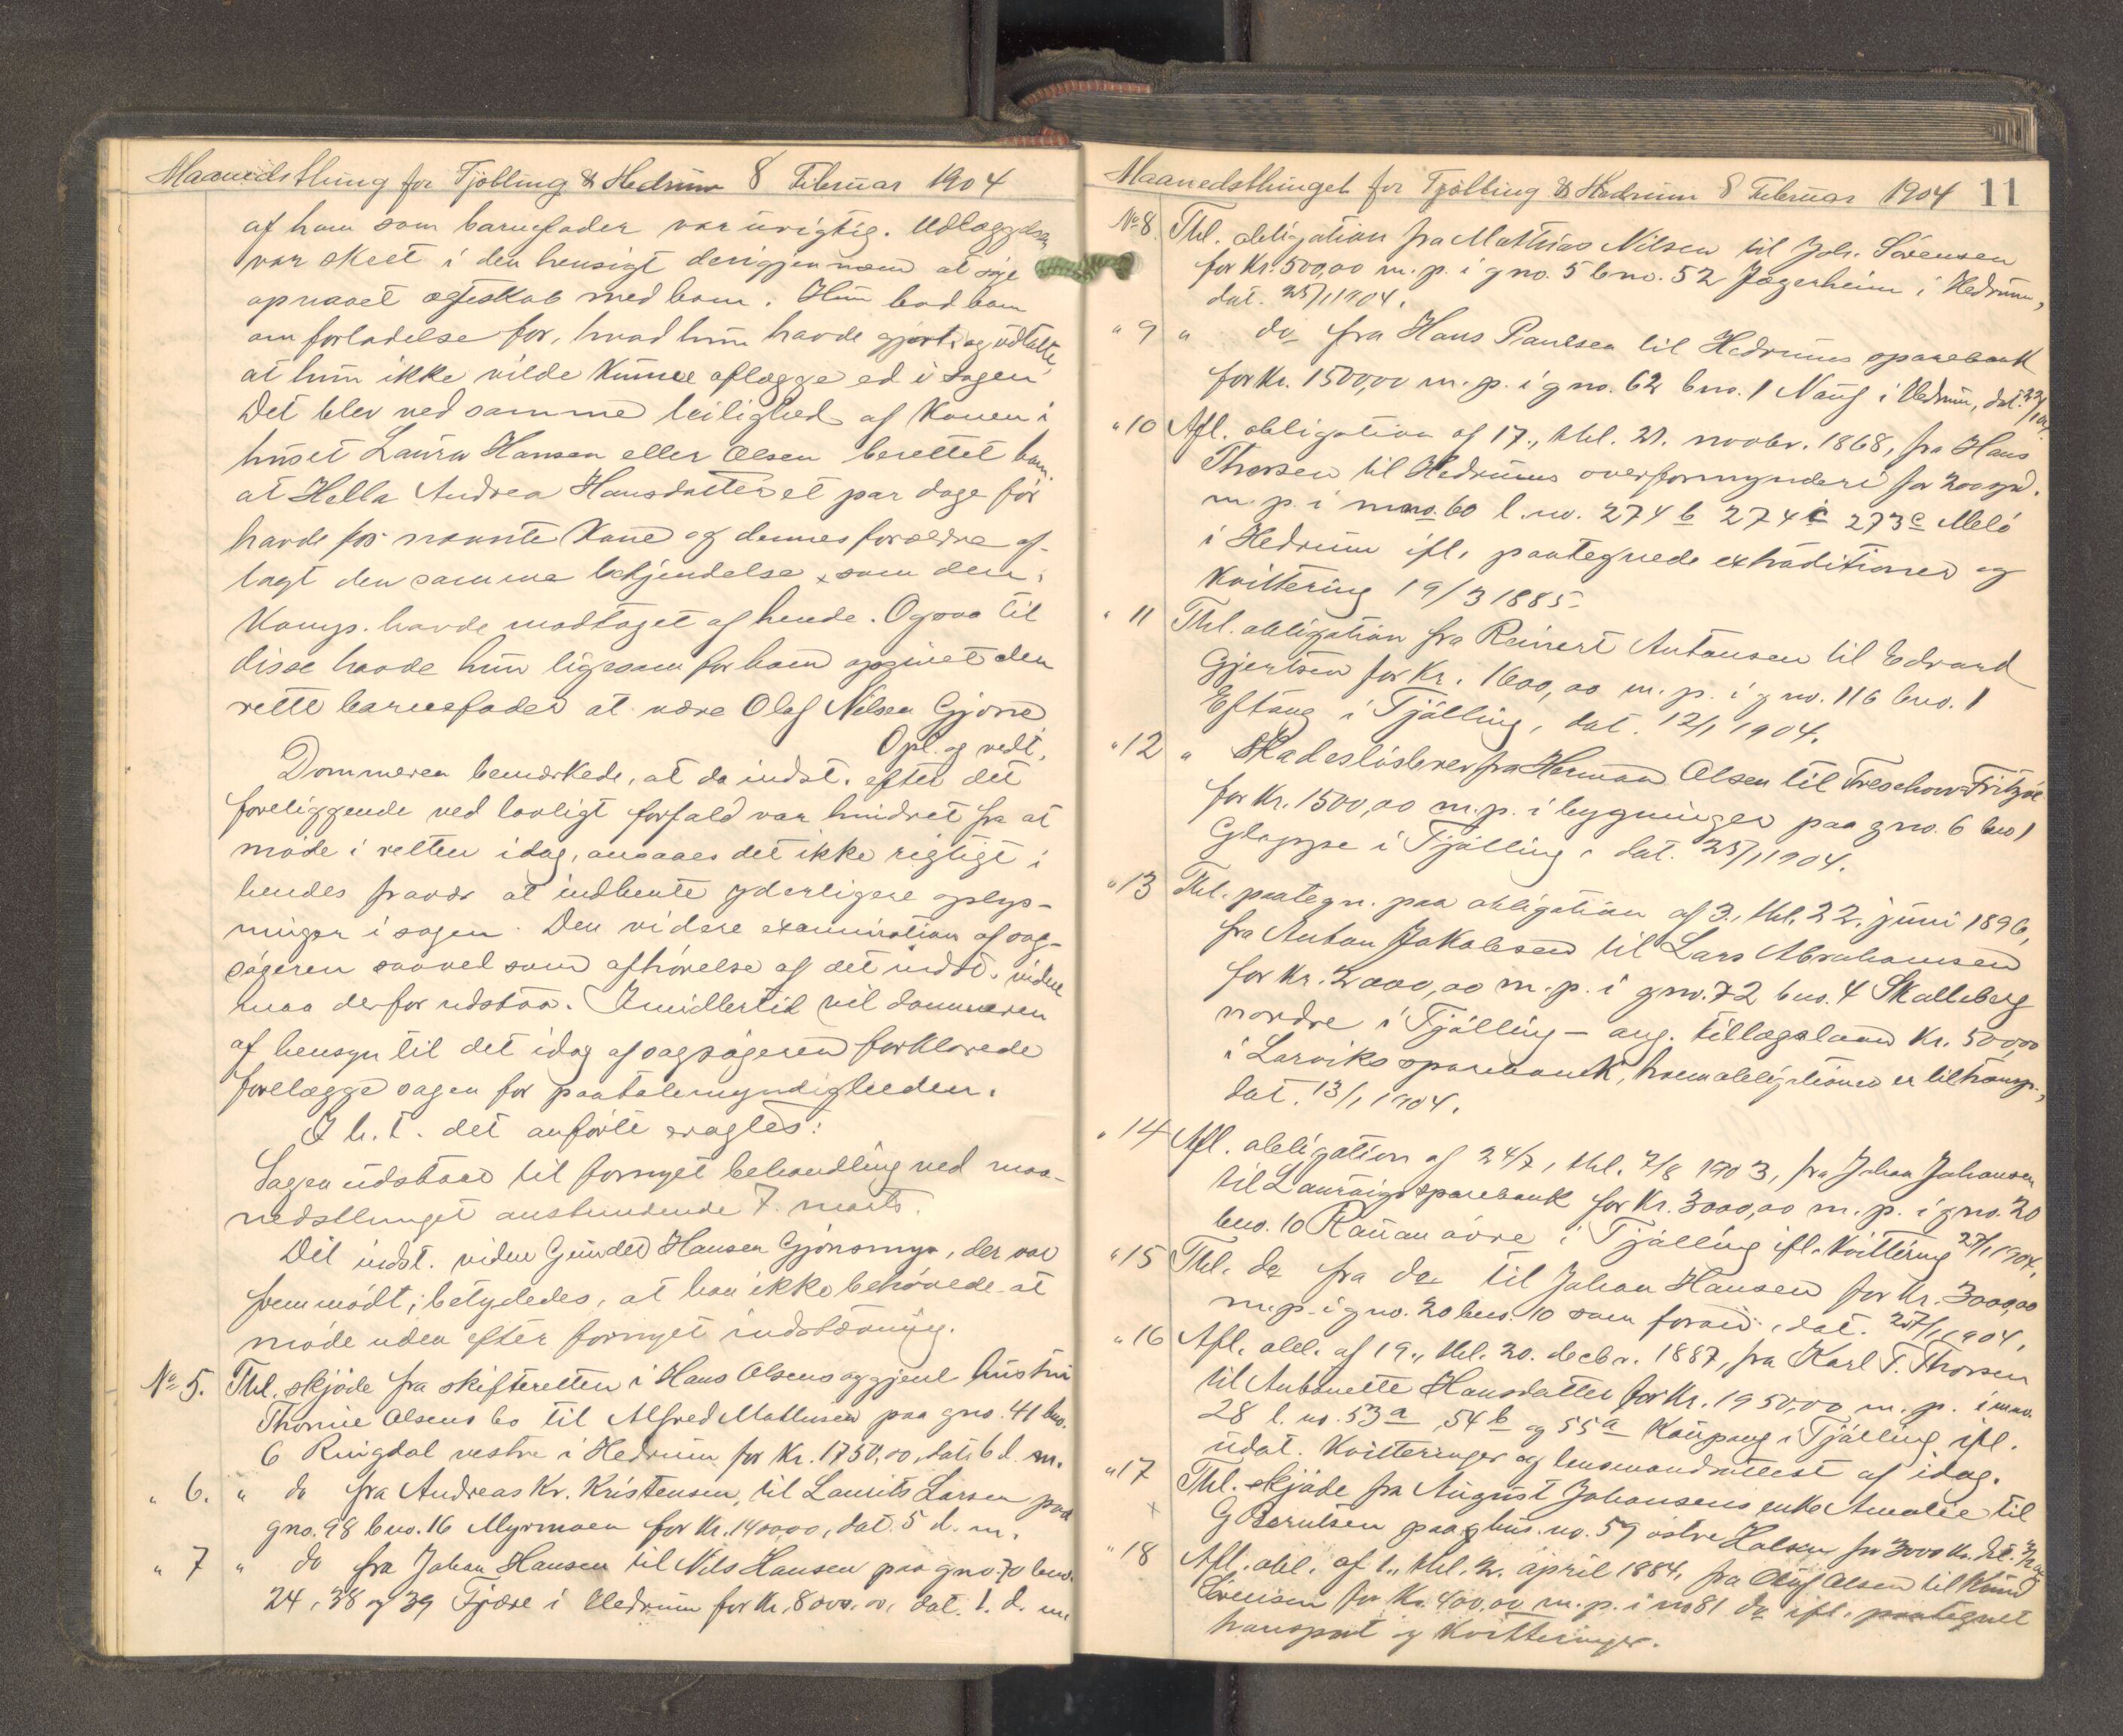 Maanedsthing for Tjølling & Hedrum 8 Februar 1904
af ham som barnefader var urigtig. Udlæggelsen
var skeet i den hensigt derigjennem at søge
opnaaet ægteskab med ham. Hun bad ham
om forladelse for, hvad hun havde gjort og udtalte,
at hun ikke vilde kunne aflægge ed i sagen
Det blev ved samme leilighed af konen i
huset Laura Hansen eller Olsen berettet ham,
at Hella Andrea Hansdatter et par dage før
havde for nævnte kone og dennes forældre af-
lagt den samme bekjendelse som den,
Komp. havde modtaget af hende. Ogsaa til
disse havde hun ligesom for ham opgivet den
rette barnefader at være Olaf Nilsen Gjøne
Opl. og vedt.
Dommeren bemærkede, at da indst. efter det
foreliggende ved lovligt forfald var hindret fra at
møde i retten idag, ansaaes det ikke rigtigt i
hendes fravær at indhente yderligere oplys-
ninger i sagen. Den videre examination af sag-
søgeren saavel som afhørelse af det indst. vidne
maa derfor udstaa. Imidlertid vil dommeren
af hensyn til det idag af sagsøgeren forklarede
forelægge sagen for paatalemyndigheden.
I h. t. det anførte eragtes:
Sagen udstaar til fornyet behandling ved maa-
nedsthinget anstundende 7. marts.
Det indst. vidne Gunder Hansen Gjønsmyr, der var
fremmødt, betydedes, at han ikke behøvede at
møde uden efter fornyet indstævning.
No 5. Thl. skjøde fra skifteretten i Hans Olsens og gjenl hustru
Thomine Olsens bo til Alfred Mathisen paa gno. 41 bno.
6 Ringdal vestre i Hedrum for Kr. 1750,00, dat. 6 d. m.
" 6. " do fra Andreas Kr. Kristensen, til Laurits Larsen paa
gno. 98 bno. 16 Myrmoen for Kr. 1400,00, dat. 5 d. m.
" 7 " do fra Johan Hansen til Nils Hansen paa gno. 70 bno.
24, 38 og 39 Tjøse i Hedrum for Kr. 8000,00, dat. 1. d. m
Maanedsthinget for Tjølling & Hedrum 8 Februar 1904 11
No 8. Thl. obligation fra Mathias Nilsen til Joh. Sørensen
for Kr. 500,00 m. p. i gno. 5 bno. 52 Jægerheim i Hedrum,
dat. 25/1 1904.
" 9 " do fra Hans Paulsen til Hedrums sparebank
for Kr. 1500,00 m. p. i gno. 62 bno. 1 Nauf i Hedrum, dat.
" 10 Afl. obligation af 17., thl. 21. novbr. 1868, fra Hans
Thorsen til Hedrums overformynderi for 200 spd.
m. p. i mno. 60 l. no. 274 b 274 c 273 c Melø
i Hedrum ifl. paategnede extraditioner og
kvittering 19/3 1885.
" 11 Thl. obligation fra Reinert Antonsen til Edvard
Gjertsen for Kr. 1600,00 m. p. i gno. 116 bno. 1
Eftang i Tjølling, dat. 12/1 1904.
" 12 " Skadesløsbrev fra Herman Olsen til Treschow-Fritzøe
for Kr. 1500,00 m. p. i bygninger paa gno. 6 bno 1
Gloppe i Tjølling, dat. 25/1 1904.
" 13 Thl. paategn. paa obligation af 3., thl. 22. juni 1896,
fra Anton Jakobsen til Lars Abrahamsen
for Kr. 2000,00 m. p. i gno. 72 bno. 4 Skalleberg
nordre i Tjølling – ang. tillægslaan Kr. 500,00
i Larviks sparebank, hvem obligationen er tiltransp.,
dat. 13/1 1904.
" 14 Afl. obligation af 24/7, thl. 7/8 1903, fra Johan Johansen
til Laurvigs sparebank for Kr. 3000,00 m. p. i gno. 20
bno. 10 Rauan øvre i Tjølling ifl. kvittering 27/1 1904.
" 15 Thl. do fra do til Johan Hansen for Kr. 3000,00
m. p. i gno. 20 bno. 10 som foran, dat. 27/1 1904.
" 16 Afl. obl. af 19., thl. 20. decbr. 1887, fra Karl T. Thorsen
til Antonette Hansdatter for Kr. 1950,00 m. p. i mno.
28 l. no. 53 a 54 b og 55 a Kaupang i Tjølling ifl.
udat. kvitteringer og lensmandsattest af idag.
" 17 Thl. skjøde fra August Johansens enke Amalie til
x G Berntsen paa hus. no. 59 østre Halsen for 3000 Kr. dat.
" 18 Afl. obl. af 1., thl. 2. april 1884, fra Oluf Olsen til Knud
Sørensen for Kr. 400,00 m. p. i no 81 do ifl. paategnet
transport og kvitteringer.